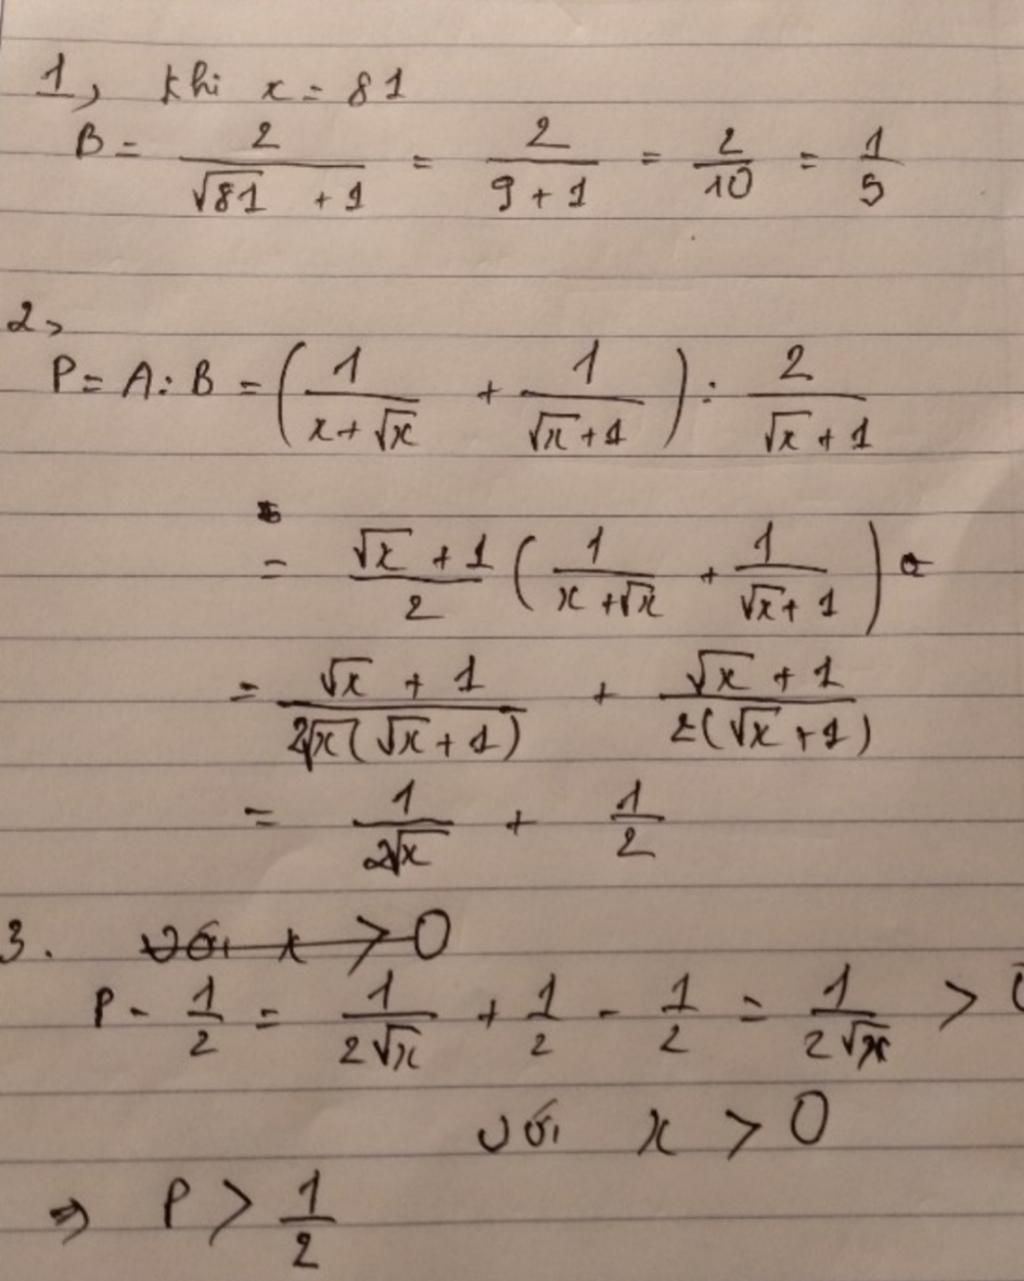 1, khi x = 81
B = 2/(√81 + 1) = 2/(9 + 1) = 2/10 = 1/5
2,
P = A : B = (1/(x + √x) + 1/(√x + 1)) : 2/(√x + 1)
= (√x + 1)/2 (1/(x + √x) + 1/(√x + 1))
= (√x + 1)/(2√x(√x + 1)) + (√x + 1)/(2(√x + 1))
= 1/(2√x) + 1/2
3. với x > 0
P - 1/2 = 1/(2√x) + 1/2 - 1/2 = 1/(2√x) > 0
với x > 0
⇒ P > 1/2